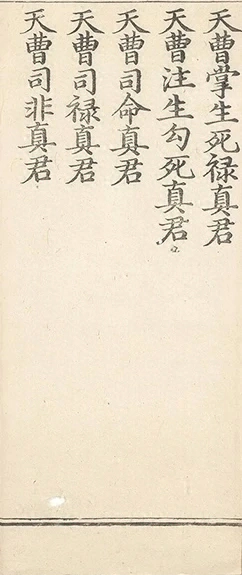 天曹掌生死禄真君
天曹注生勾死真君
天曹司命真君
天曹司禄真君
天曹司非真君